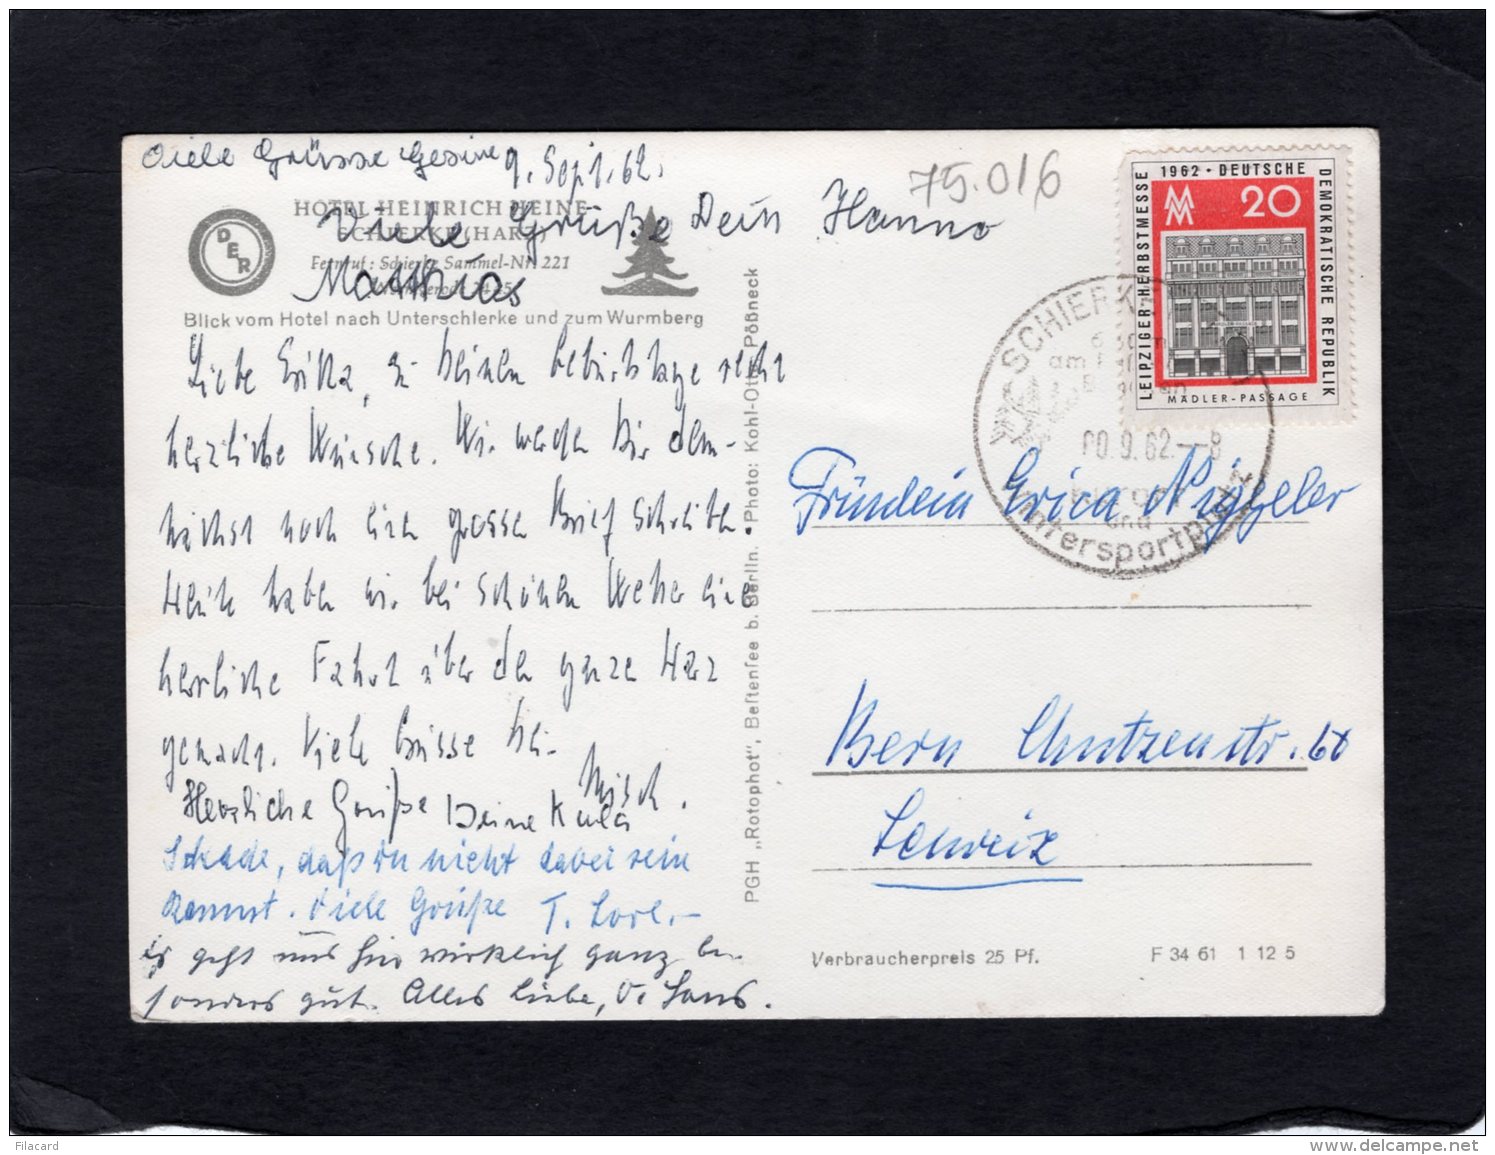 Viele Grüsse Gesine 9. Sept. 62.
75.016
HOTEL HEINRICH HEINE
Viele Grüße Dein Hanno
SCHIERKE (HARZ)
Fernruf: Schierke Sammel-Nr. 221
Matthias
DER
Blick vom Hotel nach Unterschierke und zum Wurmberg
Liebe Erika, zu Deinem Geburtstage recht
herzliche Wünsche. Wir werden Dir dem-
nächst noch einen grossen Brief schreiben.
Heute haben wir bei schönem Wetter eine
herrliche Fahrt über den ganzen Harz
gemacht. Viele Grüsse Dein
Misch.
Herzliche Grüße Deine Kula
Schade, daß du nicht dabei sein
kannst. Viele Grüße T. Lore.-
Es geht uns hier wirklich ganz be-
sonders gut. Alles Liebe, O. Hans.
PGH „Rotophot", Bestensee b. Berlin. Photo: Kohl-Otto, Pößneck
LEIPZIGER HERBSTMESSE 1962 · DEUTSCHE DEMOKRATISCHE REPUBLIK
MM 20
MÄDLER-PASSAGE
SCHIERKE
00.9.62.–8
und
Wintersportplatz
Fräulein Erica Niggeler
Bern Chutzenstr. 60
Schweiz
Verbraucherpreis 25 Pf.
F 34 61 1 12 5
Filacard
www.delcampe.net